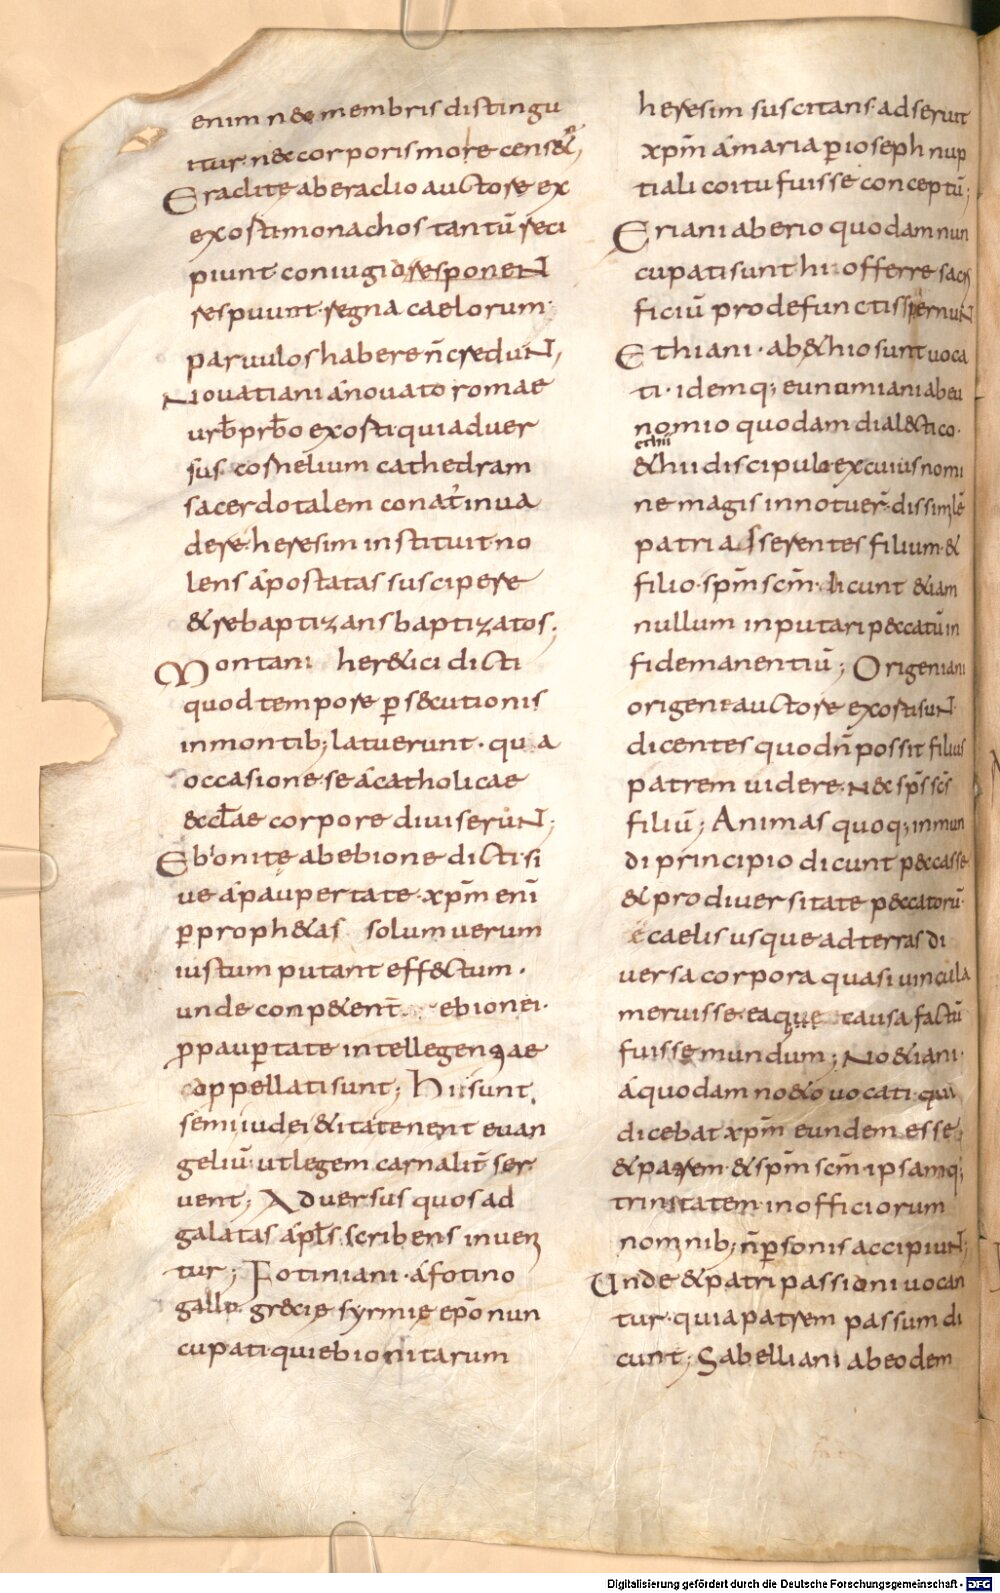 enim nec membris distingu
itur. nec corporis more censet&;
Eraclite ab eraclio auctore ex
exosti monachos tantū reci
piunt coniugia responeN
respuunt. regna caelorum.
paruulos habere n̄ creduN;
Nouatiani á nouato romae
urb̄ prb̄o exosti. qui aduer
sus cornelium cathedram
sacerdotalem conat' inua
dere. heresim instituit. no
lens ápostatas suscipere
& rebaptizans baptizatos;
Montani her&ici dicti
quod tempore p̱secutionis
in montib; latuerunt. qua
occasione se á catholicae
&cl̄ae corpore diuiserūN;
Ebonite ab ebione dicti. si
ue á paupertate. xp̄m enī
p̱ proph&as solum uerum
iustum putant effectum.
unde conp&ent̄ ebionei.
p̱ paup̱tate intellegenƺae
appellati sunt; Hii sunt
semiiudei & ita tenent euan
geliū. ut legem carnalit̄ ser
uent; Aduersus quos ad
galatas ápl̄s scribens inueƺ
tur; Fotiniani. á fotino
gallo. grecie syrmie ep̄o nun
cupati qui ebionitarum
heresim suscitans. adseruit
xp̄m á maria p̱ ioseph nup
tiali coitu fuisse conceptū;
Eriani ab erio quodam nun
cupati sunt hi. offerre sacri
ficiū pro defunctis spernuN
Ethiani. ab &hio sunt uoca
ti. idemq; eunumiani ab eu
nomio quodam dialectico.
&hii discipulo ex cuius nomi
ne magis innotuer̄. dissimilē
patri adserentes filium. &
filio. sp̄m scm̄. dicunt &iam
nullum inputari peccatū in
fide manentiū; Origeniani
origene auctore exosti suN
dicentes quod n̄ possit filius
patrem uidere. nec sp̄s sc̄s
filiū; Animas quoq; in mun
di principio dicunt peccasse
& pro diuersitate peccatorū.
e caelis usque ad terras di
uersa corpora quasi uincula
meruisse. eaque causa factū
fuisse mundum; No&iani.
á quodam no&o uocati. qui
dicebat xp̄m eundem esse
& patrem. & sp̄m scm̄. ipsamq;
trinitatem. in officiorum
nominib; n̄ p̱sonis accipiuN;
Unde & patripassioni uocan
tur. quia patrem passum di
cunt; Sabelliani ab eodem
Digitalisierung gefördert durch die Deutsche Forschungsgemeinschaft - DFG